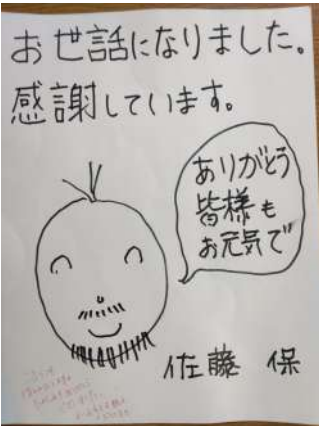 お世話になりました。
感謝しています。
ありがとう
皆様も
お元気で
佐藤 保